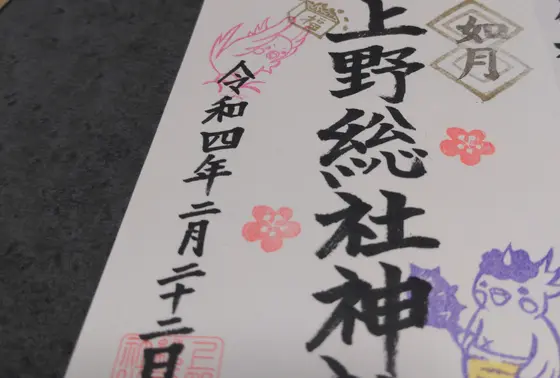 如月
上野総社神
令和四年二月二十二日
福